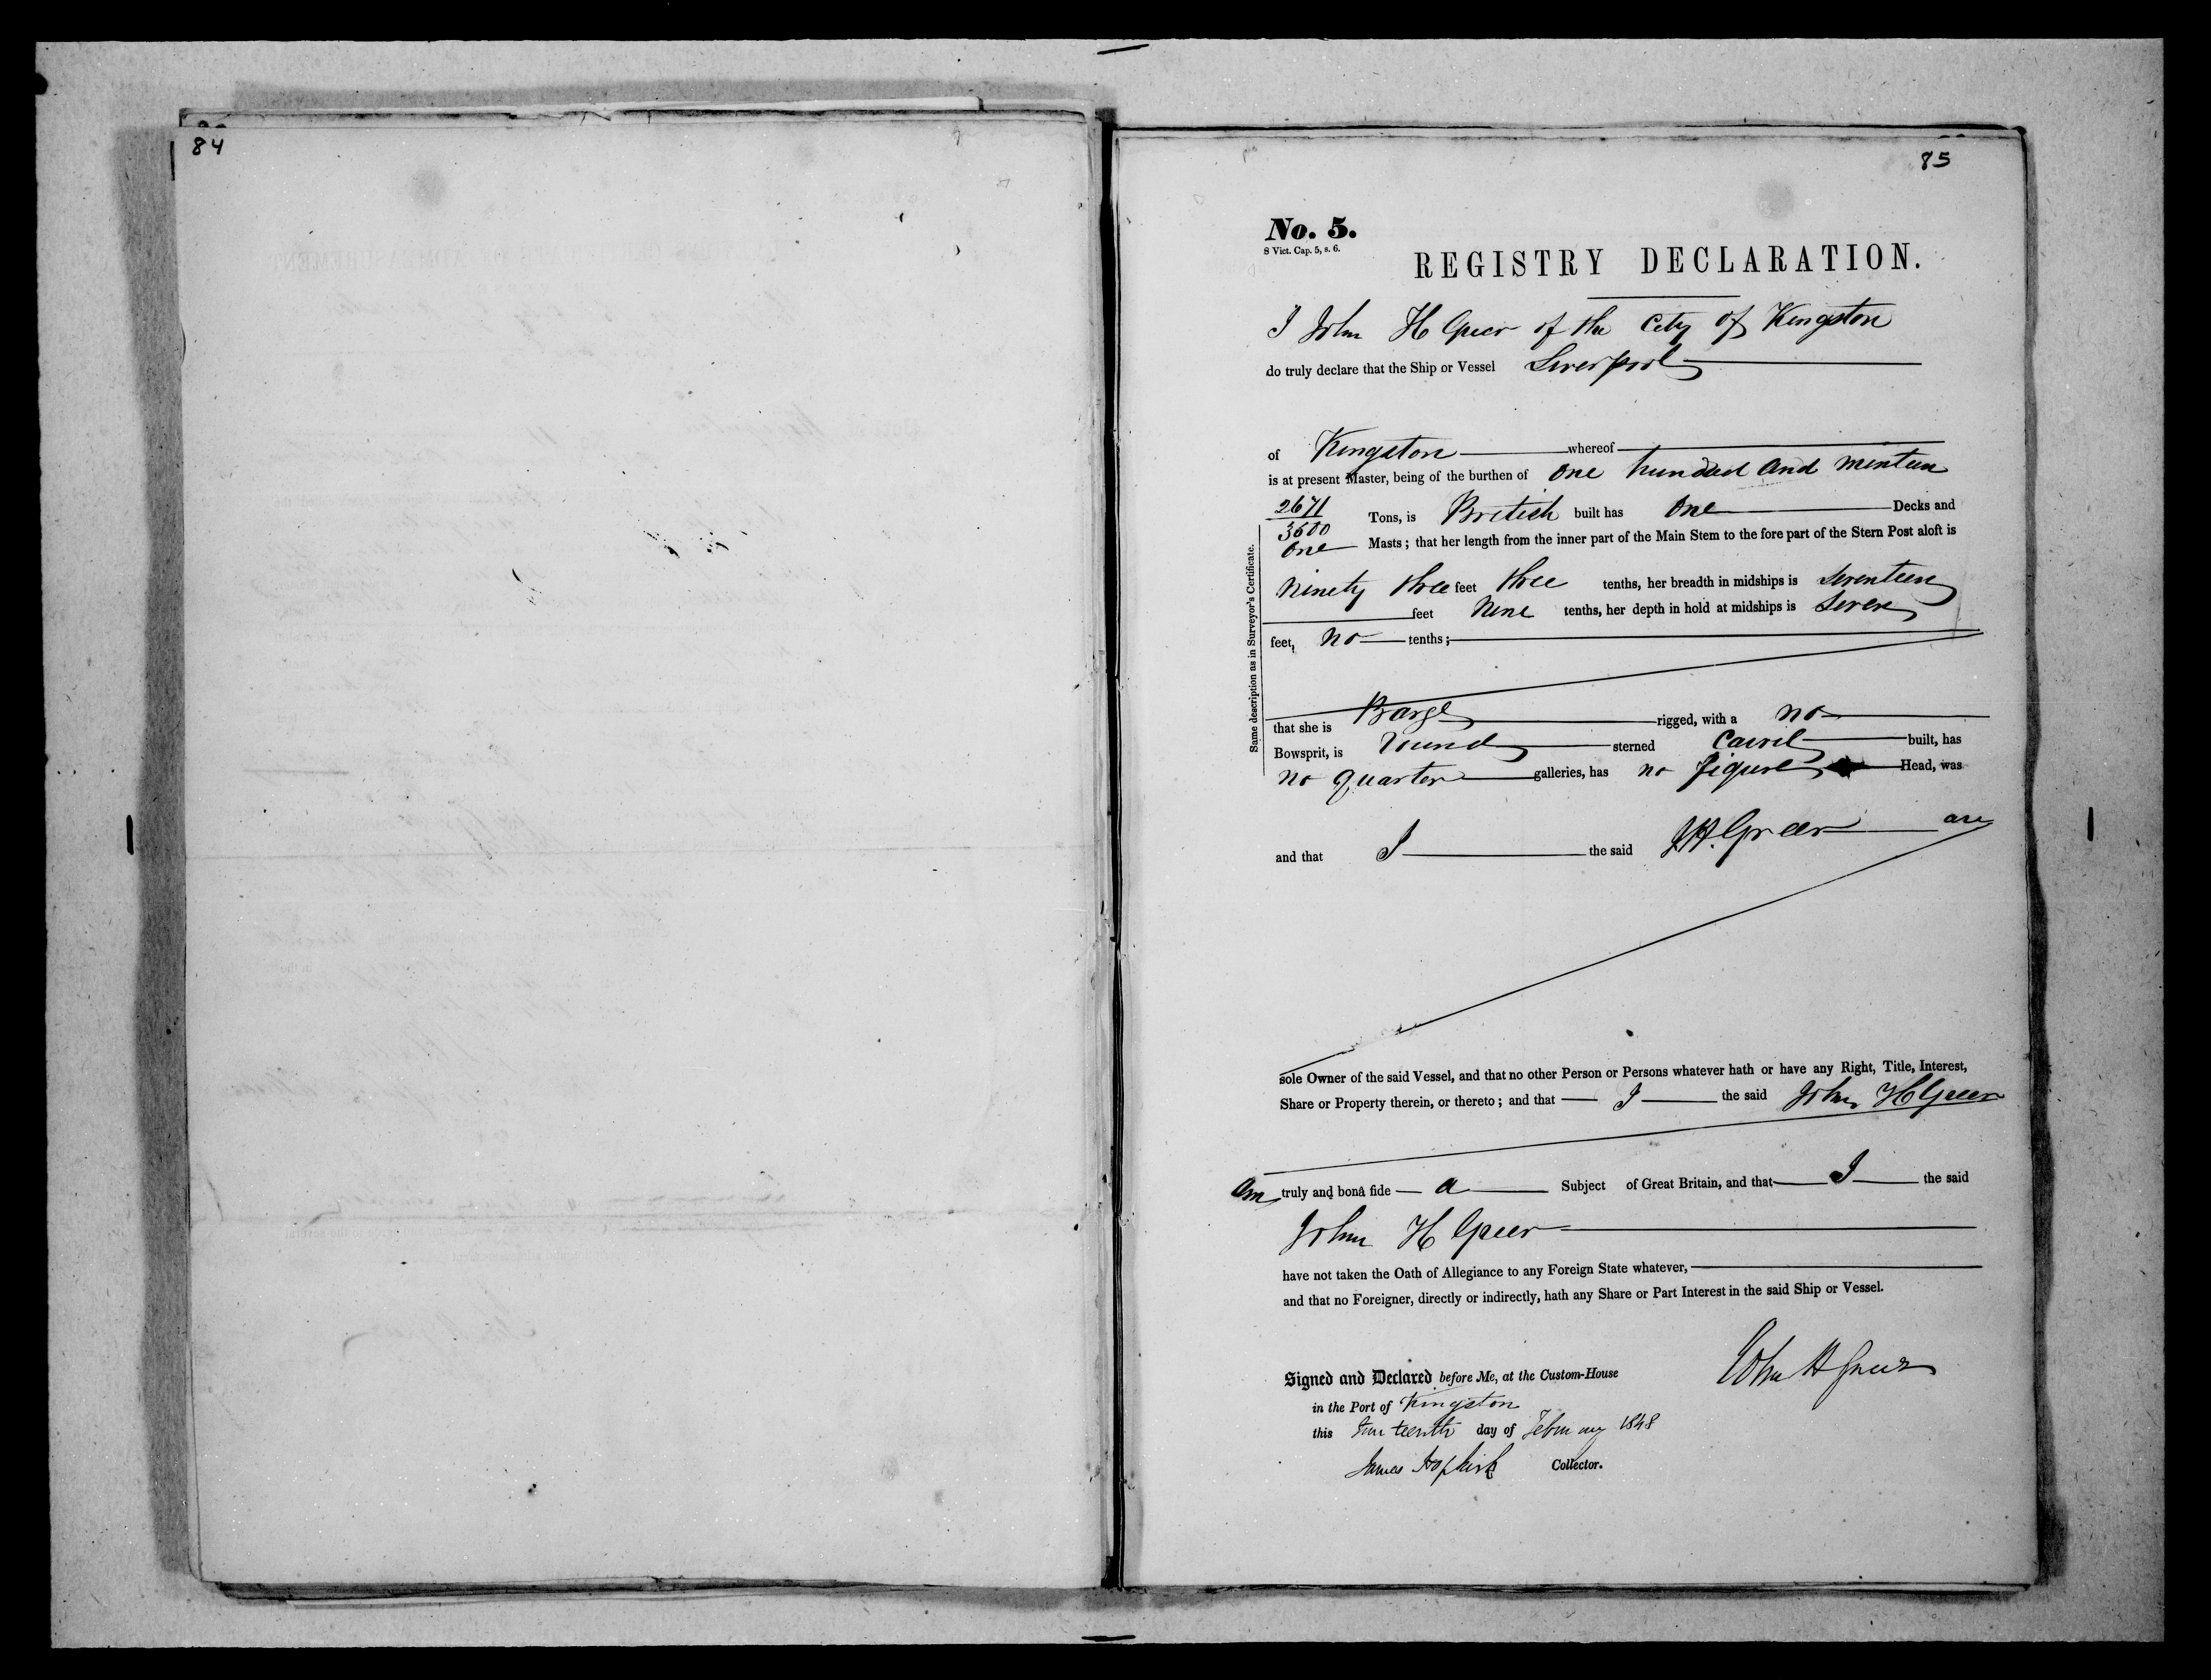 84
85
No. 5.
8 Vict. Cap. 5, s. 6.
REGISTRY DECLARATION.
I John H Greer of the City of Kingston
do truly declare that the Ship or Vessel Liverpool
of Kingston whereof
is at present Master, being of the burthen of One hundred and ninteen
2671
3500
Tons, is British built has One Decks and
One Masts; that her length from the inner part of the Main Stem to the fore part of the Stern Post aloft is
Ninety three feet three tenths, her breadth in midships is Seventeen
feet Nine tenths, her depth in hold at midships is Seven
feet, No tenths;
Same description as in Surveyor's Certificate.
that she is Barge rigged, with a no
Bowsprit, is round sterned Carvil built, has
no quarter galleries, has no figure Head, was
and that I the said J.H. Greer are
sole Owner of the said Vessel, and that no other Person or Persons whatever hath or have any Right, Title, Interest,
Share or Property therein, or thereto; and that I the said John H Greer
Am truly and bonâ fide a Subject of Great Britain, and that I the said
John H Greer
have not taken the Oath of Allegiance to any Foreign State whatever,
and that no Foreigner, directly or indirectly, hath any Share or Part Interest in the said Ship or Vessel.
John H Greer
Signed and Declared before Me, at the Custom-House
in the Port of Kingston
this day of February 1848
James Hopkirk Collector.